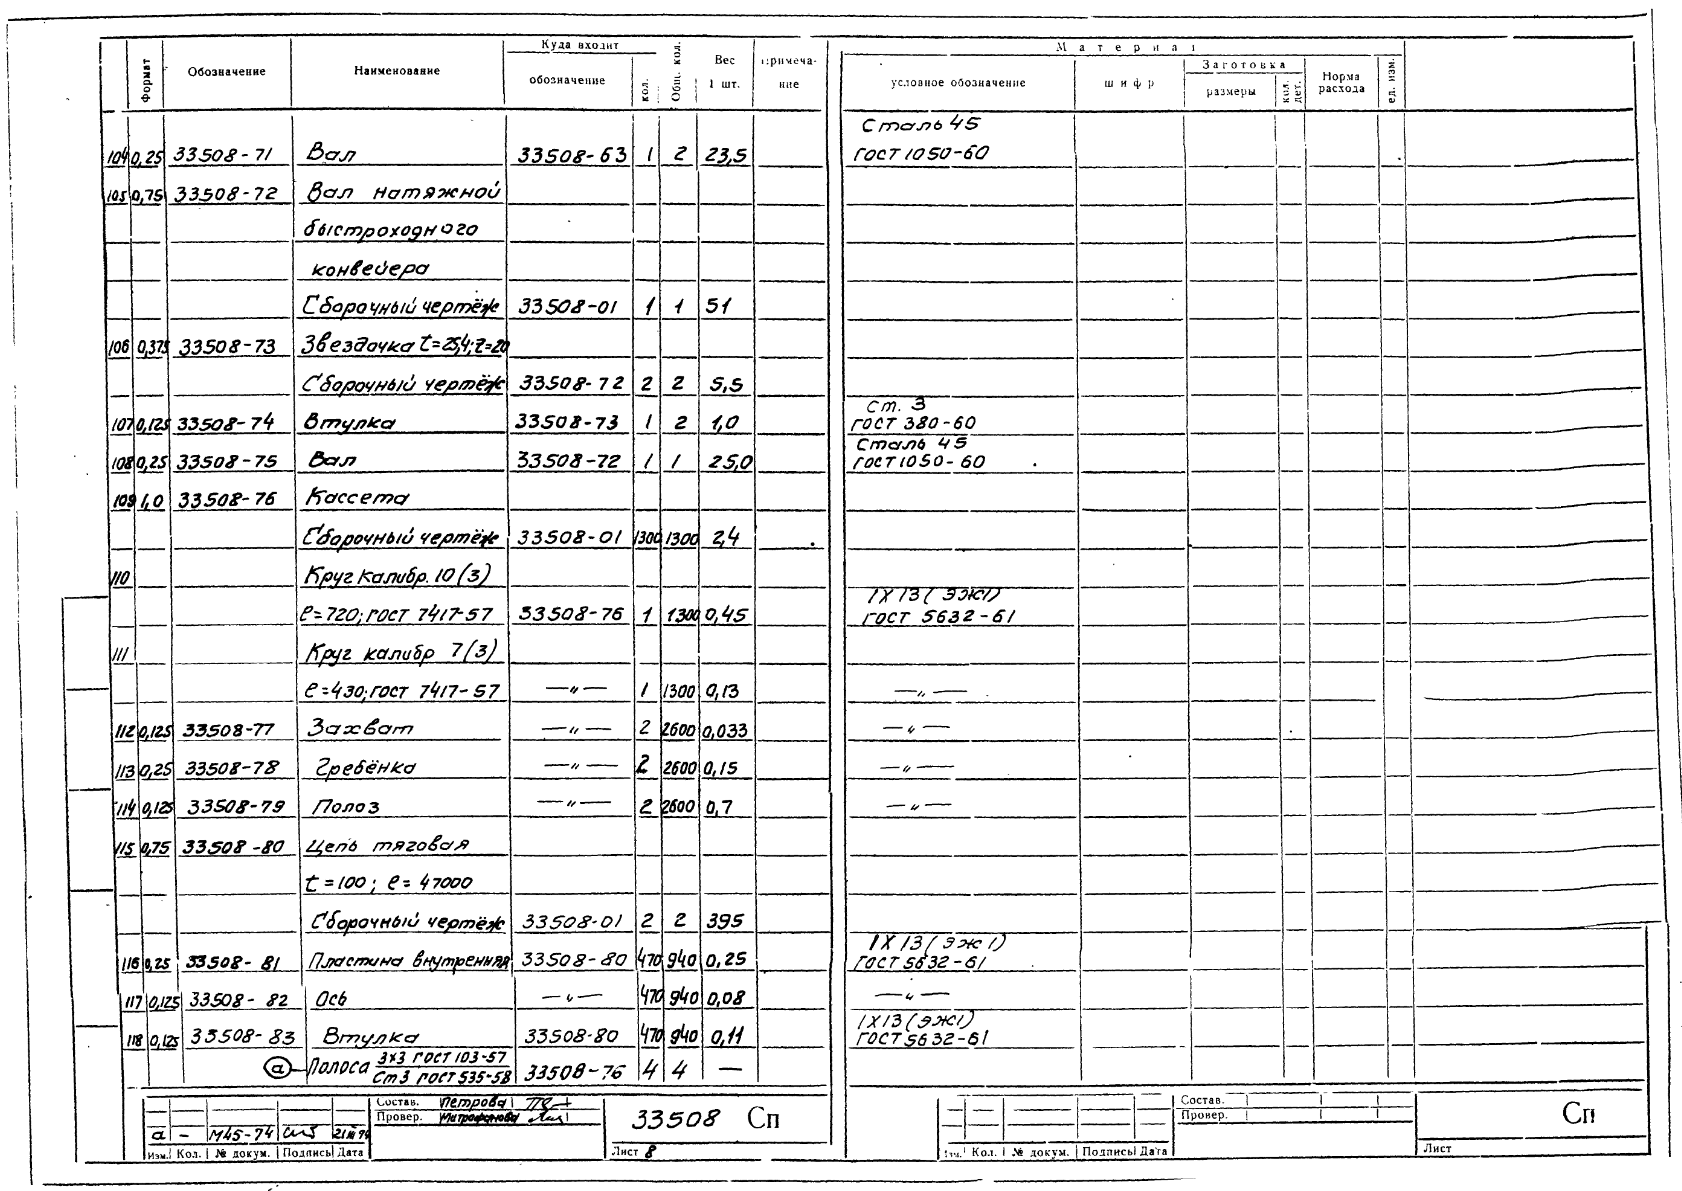 Формат Обозначение Наименование Куда входит обозначение кол. Общ. кол. Вес 1 шт. Примечание Материал условное обозначение шифр Заготовка размеры кол. дет. Норма расхода ед. изм.
Сталь 45
104 0,25 33508-71 Вал 33508-63 1 2 23,5 ГОСТ 1050-60
105 0,75 33508-72 Вал натяжной
быстроходного
конвейера
Сборочный чертёж 33508-01 1 1 51
106 0,375 33508-73 Звездочка t=25,4; z=20
Сборочный чертёж 33508-72 2 2 5,5
Ст. 3
107 0,125 33508-74 Втулка 33508-73 1 2 1,0 ГОСТ 380-60
Сталь 45
108 0,25 33508-75 Вал 33508-72 1 1 25,0 ГОСТ 1050-60
109 1,0 33508-76 Кассета
Сборочный чертёж 33508-01 1300 1300 2,4
110 Круг калибр. 10 (3)
1Х13 (ЭЖ1)
ℓ=720; ГОСТ 7417-57 33508-76 1 1300 0,45 ГОСТ 5632-61
111 Круг калибр 7 (3)
ℓ=430; ГОСТ 7417-57 —〃— 1 1300 0,13 —〃—
112 0,125 33508-77 Захват —〃— 2 2600 0,033 —〃—
113 0,25 33508-78 Гребёнка —〃— 2 2600 0,15 —〃—
114 0,125 33508-79 Полоз —〃— 2 2600 0,7 —〃—
115 0,75 33508-80 Цепь тяговая
t=100; ℓ=47000
Сборочный чертёж 33508-01 2 2 395
1Х13 (ЭЖ1)
116 0,25 33508-81 Пластина внутренняя 33508-80 470 940 0,25 ГОСТ 5632-61
117 0,125 33508-82 Ось —〃— 470 940 0,08 —〃—
1Х13 (ЭЖ1)
118 0,125 33508-83 Втулка 33508-80 470 940 0,11 ГОСТ 5632-61
а Полоса 3х3 ГОСТ 103-57
Ст3 ГОСТ 535-58 33508-76 4 4 —
Состав. Петрова
Провер. Митрофанова
а - М45-74 21 III 74
Изм. Кол. № докум. Подпись Дата
33508 Сп
Лист 8
Состав.
Провер.
Изм. Кол. № докум. Подпись Дата
Сп
Лист